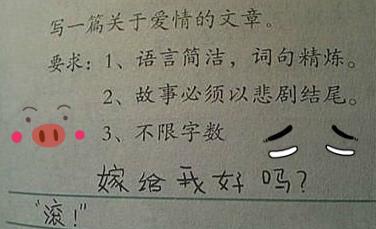 写一篇关于爱情的文章。
要求：1、语言简洁，词句精炼。
2、故事必须以悲剧结尾。
3、不限字数
嫁给我好吗？
“滚！”